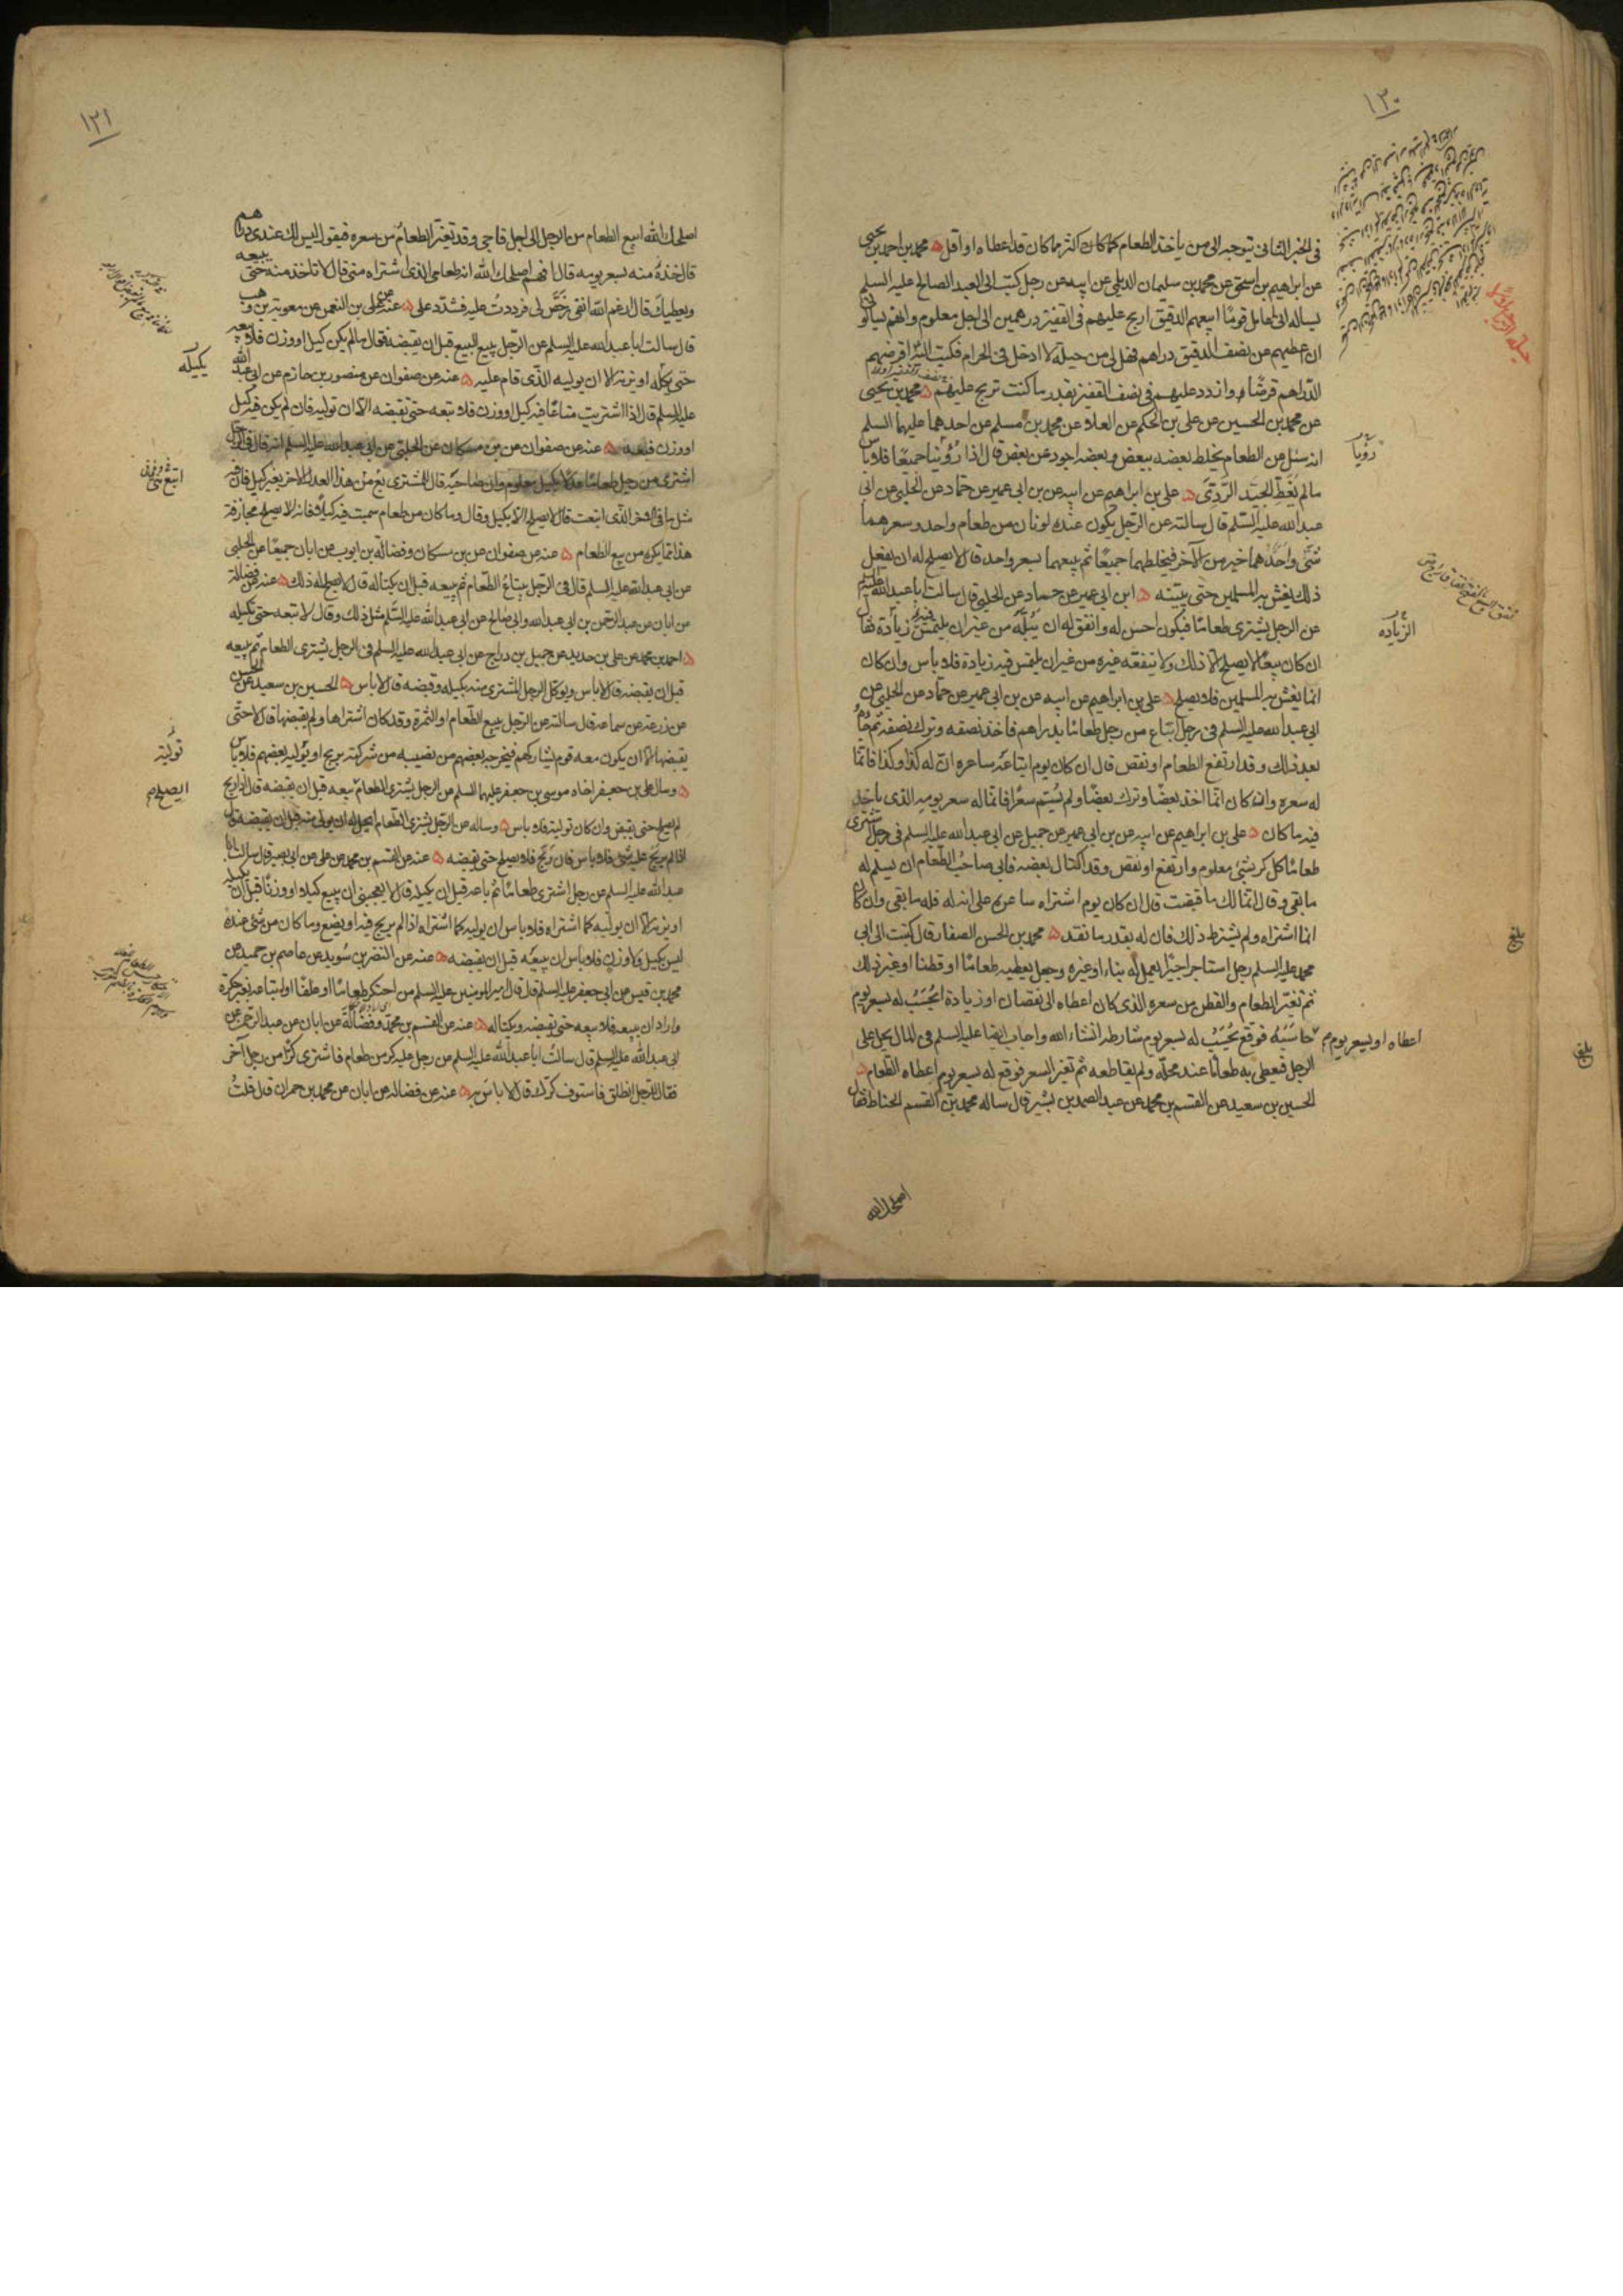 ١٢٠
في الخبر الثاني يتوجه الى من يأخذ الطعام كما كان اكثر مما كان قد اعطاه او اقل ه محمد بن احمد بن يحيى
عن ابراهيم بن اسحق عن محمد بن سليمان الديلمي عن ابيه عن رجل كتب الى العبد الصالح عليه السلم
يساله انى اعامل قوما ابيعهم الدقيق اربح عليهم في القفيز درهمين الى اجل معلوم وانهم يسألونى
ان اعطيهم عن نصف الدقيق دراهم فهل لى من حيلة لا ادخل في الحرام فكتب اليه اقرضهم
الدراهم قرضا وازدد عليهم في نصف القفيز بقدر ما كنت تربح عليهم ه محمد بن يحيى
عن محمد بن الحسين عن على بن الحكم عن العلا عن محمد بن مسلم عن احدهما عليهما السلم
انه سئل عن الطعام يخلط بعضه ببعض وبعضه اجود من بعض قال اذا رؤيتا جميعا فلا باس
ما لم يغط الجيد الردى ه على بن ابراهيم عن ابيه عن بن ابى عمير عن حماد عن الحلبى عن ابى
عبد الله عليه السلم قال سالته عن الرجل يكون عنده لونان من طعام واحد وسعرهما
شتى واحدهما خير من الآخر فيخلطهما جميعا ثم يبيعهما بسعر واحد قال لا يصلح له ان يفعل
ذلك يغش به المسلمين حتى يبينه ه ابن ابى عمير عن حماد عن الحلبى قال سالت ابا عبد الله عليه السلم
عن الرجل يشترى طعاما فيكون احسن له وانفق له ان يبله من غير ان يلتمس فيه زيادة فقال
ان كان بيعا لا يصلح الا ذلك ولا ينفقه غيره من غير ان يلتمس فيه زيادة فلا باس وان كان
انما يغش به المسلمين فلا يصلح ه على بن ابراهيم عن ابيه عن بن ابى عمير عن حماد عن الحلبى عن
ابى عبد الله عليه السلم في رجل ابتاع من رجل طعاما بدراهم فاخذ نصفه وترك نصفه ثم جاء
بعد ذلك وقد ارتفع الطعام او نقص قال ان كان يوم ابتاعه ساعره ان له كذا وكذا فانما
له سعره وان كان انما اخذ بعضا وترك بعضا ولم يسم سعرا فانما له سعر يومه الذى يأخذ
فيه ما كان ه على بن ابراهيم عن ابيه عن بن ابى عمير عن جميل عن ابى عبد الله عليه السلم في رجل اشترى
طعاما كل كر بشئ معلوم وارتفع او نقص وقد اكتال بعضه فابى صاحب الطعام ان يسلم له
ما بقى وقال انما لك ما قبضت قال ان كان يوم اشتراه ساعره على انه له فله ما بقى وان كان
انما اشتراه ولم يشترط ذلك فان له بقدر ما نقد ه محمد بن الحسن الصفار قال كتبت الى ابى
محمد عليه السلم رجل استاجر اجيرا يعمل له بناء او غيره وجعل يعطيه طعاما او قطنا او غير ذلك
ثم تغير الطعام والقطن من سعره الذى كان اعطاه الى نقصان او زيادة ايحتسب له بسعر يوم
اعطاه او بسعر يوم حاسبه فوقع يحتسب له بسعر يوم شارطه انشاء الله واجاب ايضا عليه السلم في المال يحل على
الرجل فيعطى به طعاما عند محله ولم يقاطعه ثم تغير السعر فوقع له بسعر يوم اعطاه الطعام ه
الحسين بن سعيد عن القسم بن محمد عن عبد الصمد بن بشير قال ساله محمد بن القسم الحناط فقال
اصلحك الله
حيلة الربا
رؤيا
الزياده
بلغ
بلغ
١٢١
اصلحك الله ابيع الطعام من الرجل الى اجل فاجى وقد تغير الطعام من سعره فيقول ليس لك عندى دراهم
قال خذ منه بسعر يومه قال افهم اصلحك الله انه طعامى الذى اشتراه منى قال لا تاخذ منه حتى يبيعه
ويعطيك قال ارغم الله انفى رخص لى فرددت عليه فشدد على ه عنه عن على بن النعمن عن معوية بن وهب
قال سالت ابا عبد الله عليه السلم عن الرجل يبيع البيع قبل ان يقبضه فقال ما لم يكن كيل او وزن فلا يبعه
حتى يكله او يزنه الا ان يوليه الذى قام عليه ه عنه عن صفوان عن منصور بن حازم عن ابى عبد الله
عليه السلم قال اذا اشتريت متاعا فيه كيل او وزن فلا تبعه حتى تقبضه الا ان توليه فان لم يكن فيه كيل
او وزن فبعه ه عنه عن صفوان عن بن مسكان عن الحلبى عن ابى عبد الله عليه السلم انه قال في رجل
اشترى من رجل طعاما عدلا بكيل معلوم وان صاحبه قال للمشترى ابتع منى هذا العدل الآخر بغير كيل فان فيه
مثل ما في الآخر الذى ابتعت قال لا يصلح الا بكيل وقال وما كان من طعام سميت فيه كيلا فانه لا يصلح مجازفة
هذا مما يكره من بيع الطعام ه عنه عن صفوان عن بن مسكان وفضالة بن ايوب عن ابان جميعا عن الحلبى
عن ابى عبد الله عليه السلم قال في الرجل يبتاع الطعام ثم يبيعه قبل ان يكتاله قال لا يصلح له ذلك ه عنه عن فضالة
عن ابان عن عبد الرحمن بن ابى عبد الله وابى صالح عن ابى عبد الله عليه السلم مثل ذلك وقال لا تبعه حتى تكيله
ه احمد بن محمد عن على بن حديد عن جميل بن دراج عن ابى عبد الله عليه السلم في الرجل يشترى الطعام ثم يبيعه
قبل ان يقبضه قال لا باس ويوكل الرجل المشترى منه بكيله وقبضه قال لا باس ه الحسين بن سعيد عن الحسن
عن زرعة عن سماعة قال سالته عن الرجل يبيع الطعام او الثمرة وقد كان اشتراها ولم يقبضها قال لا حتى
يقبضها الا ان يكون معه قوم يشاركهم فيخرجه بعضهم من نصيبه من شركته بربح او يوليه بعضهم فلا باس
ه وسال على بن جعفر اخاه موسى بن جعفر عليهما السلم عن الرجل يشترى الطعام ايبيعه قبل ان يقبضه قال اذا ربح
لم يصلح حتى يقبض وان كان تولية فلا باس ه وساله عن الرجل يشترى الطعام ايحل له ان يولى منه قبل ان يقبضه قال
اذا لم يربح عليه شئ فلا باس فان ربح فلا يصلح حتى يقبضه ه عنه عن القسم بن محمد عن على عن ابى بصير قال سالت ابا
عبد الله عليه السلم عن رجل اشترى طعاما ثم باعه قبل ان يكيله قال لا يعجبنى ان يبيع كيلا او وزنا قبل ان يكيله
او يزنه الا ان يوليه كما اشتراه فلا باس ان يوليه كما اشتراه اذا لم يربح فيه او يضع وما كان من شئ عنده
ليس بكيل ولا وزن فلا باس ان يبيعه قبل ان يقبضه ه عنه عن النضر بن سويد عن عاصم بن حميد عن
محمد بن قيس عن ابى جعفر عليه السلم قال قال امير المومنين عليه السلم من احتكر طعاما او علفا او ابتاعه بغير حكرة
واراد ان يبيعه فلا يبيعه حتى يقبضه ويكتاله ه عنه عن القسم بن محمد وفضالة عن ابان عن عبد الرحمن بن
ابى عبد الله عليه السلم قال سالت ابا عبد الله عليه السلم عن رجل عليه كر من طعام فاشترى كرا من رجل آخر
فقال للرجل انطلق فاستوف كرك قال لا باس به ه عنه عن فضالة عن ابان عن محمد بن حمران قال قلت
يكيله
تولية
ايصلح